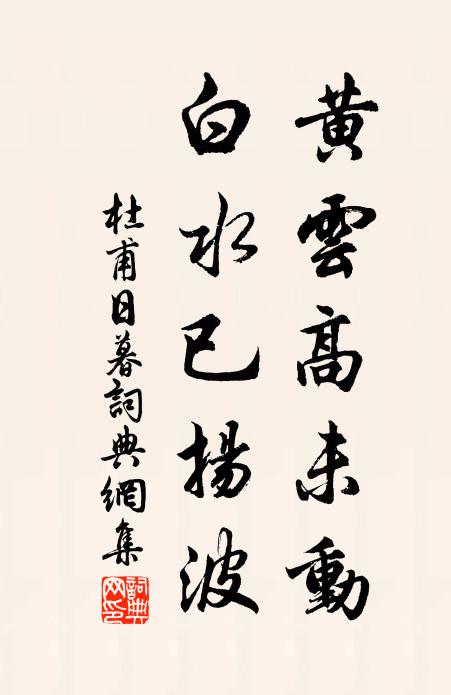 黃雲高未動
白水已揚波
杜甫日暮詞典網集
詞典
网印